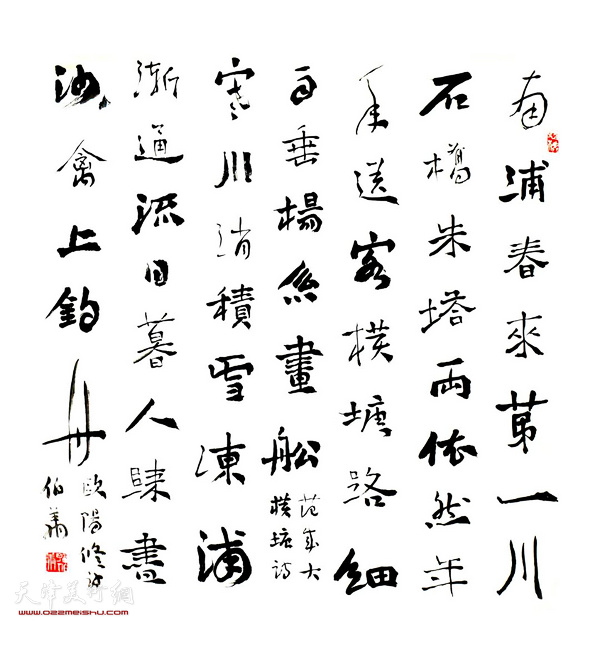 南浦春來第一川
石橋朱塔兩依然年
年送客橫塘路細
雨垂楊系畫船
范成大
橫塘詩
寒川消積雪凍浦
漸通流日暮人歸盡
沙禽上釣舟
歐陽修詩
伯
天津美術網
www.022meishu.com